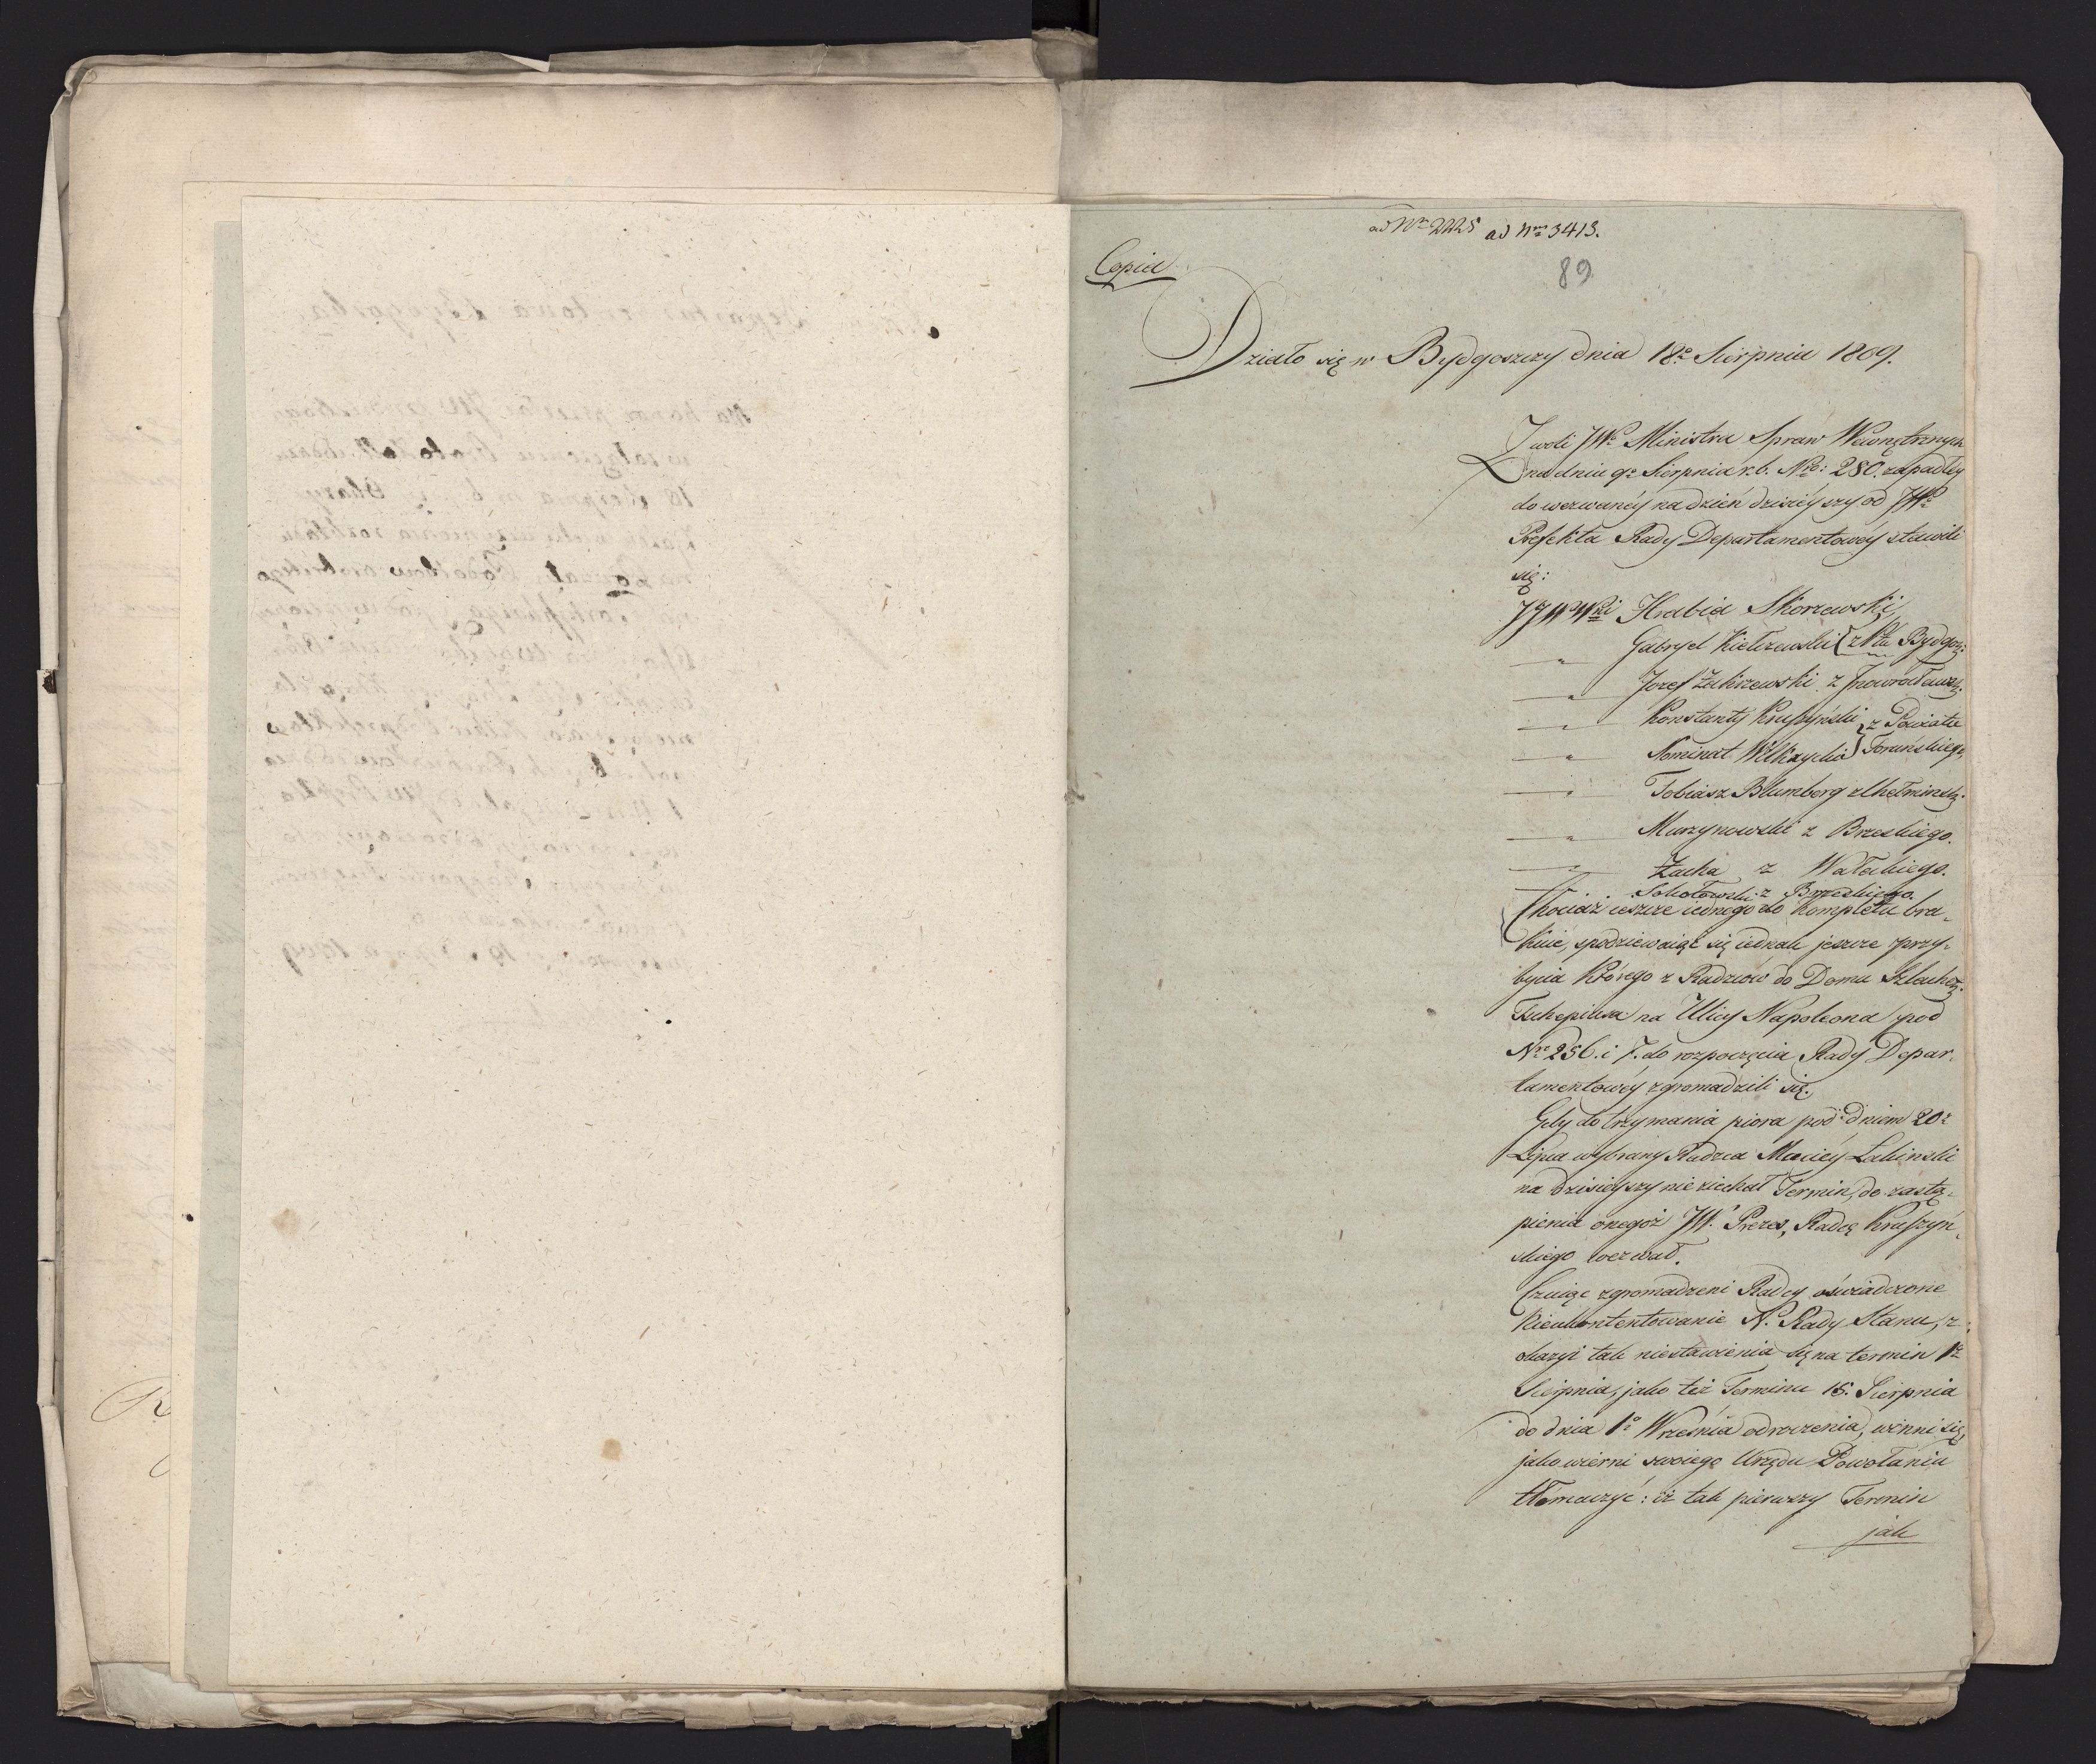 ad Nrm 2225 ad Nrm 3413.
89
Copia
Działo się w Bydgoszczy dnia 18o Sierpnia 1809.
Z woli JWo Ministra Spraw Wewnętrznych
na dniu 9o Sierpnia r. b. Nro: 280. zapadłey
do wezwanéy na dzień dzisiéyszy od JWo
Prefekta Rady Departamentowéy stawili
się:
JJWWni Hrabia Skorzewski
" Gabryel Kiełczewski z Ptu Bydgos:
" Jozef Zakrzewski z Inowrocławsk:
" Konstanty Kruszyński z Powiatu
" Nominat Wilkxycki Toruńskiego
" Tobiasz Blumberg z Chełminsk:
" Murzynowski z Brzeskiego.
" Zacha z Wałeckiego.
Sokołowski z Brzeskiego.
Chociaż ieszcze iednego do kompletu bra-
kuie, spodziewaiąc się iednak jeszcze przy-
bycia którego z Radzców do Domu Szlachet:
Tschepiusa na Ulicy Napoleona pod
Nro 256. i 7. do rozpoczęcia Rady Depar-
tamentowéy zgromadzili się.
Gdy do trzymania piora pod dniem 20o
Lipca wybrany Radzca Maciéy Łakinski
na dzisieyszy nie ziechał Termin, do zastą-
pienia onegoż JW. Prezes, Radcę Kruszyń-
skiego wezwał.
Czuiąc zgromadzeni Radcy oświadczone
Nieukontentowanie N. Rady Stanu, z
okazyi tak niestawienia się na termin 1o
Sierpnia, jako też Terminu 15. Sierpnia
do dnia 1o Września odroczenia, winni się
jako wierni swoiego Urzędu Powołaniu
tłómaczyć: iż tak pierwszy Termin
jak